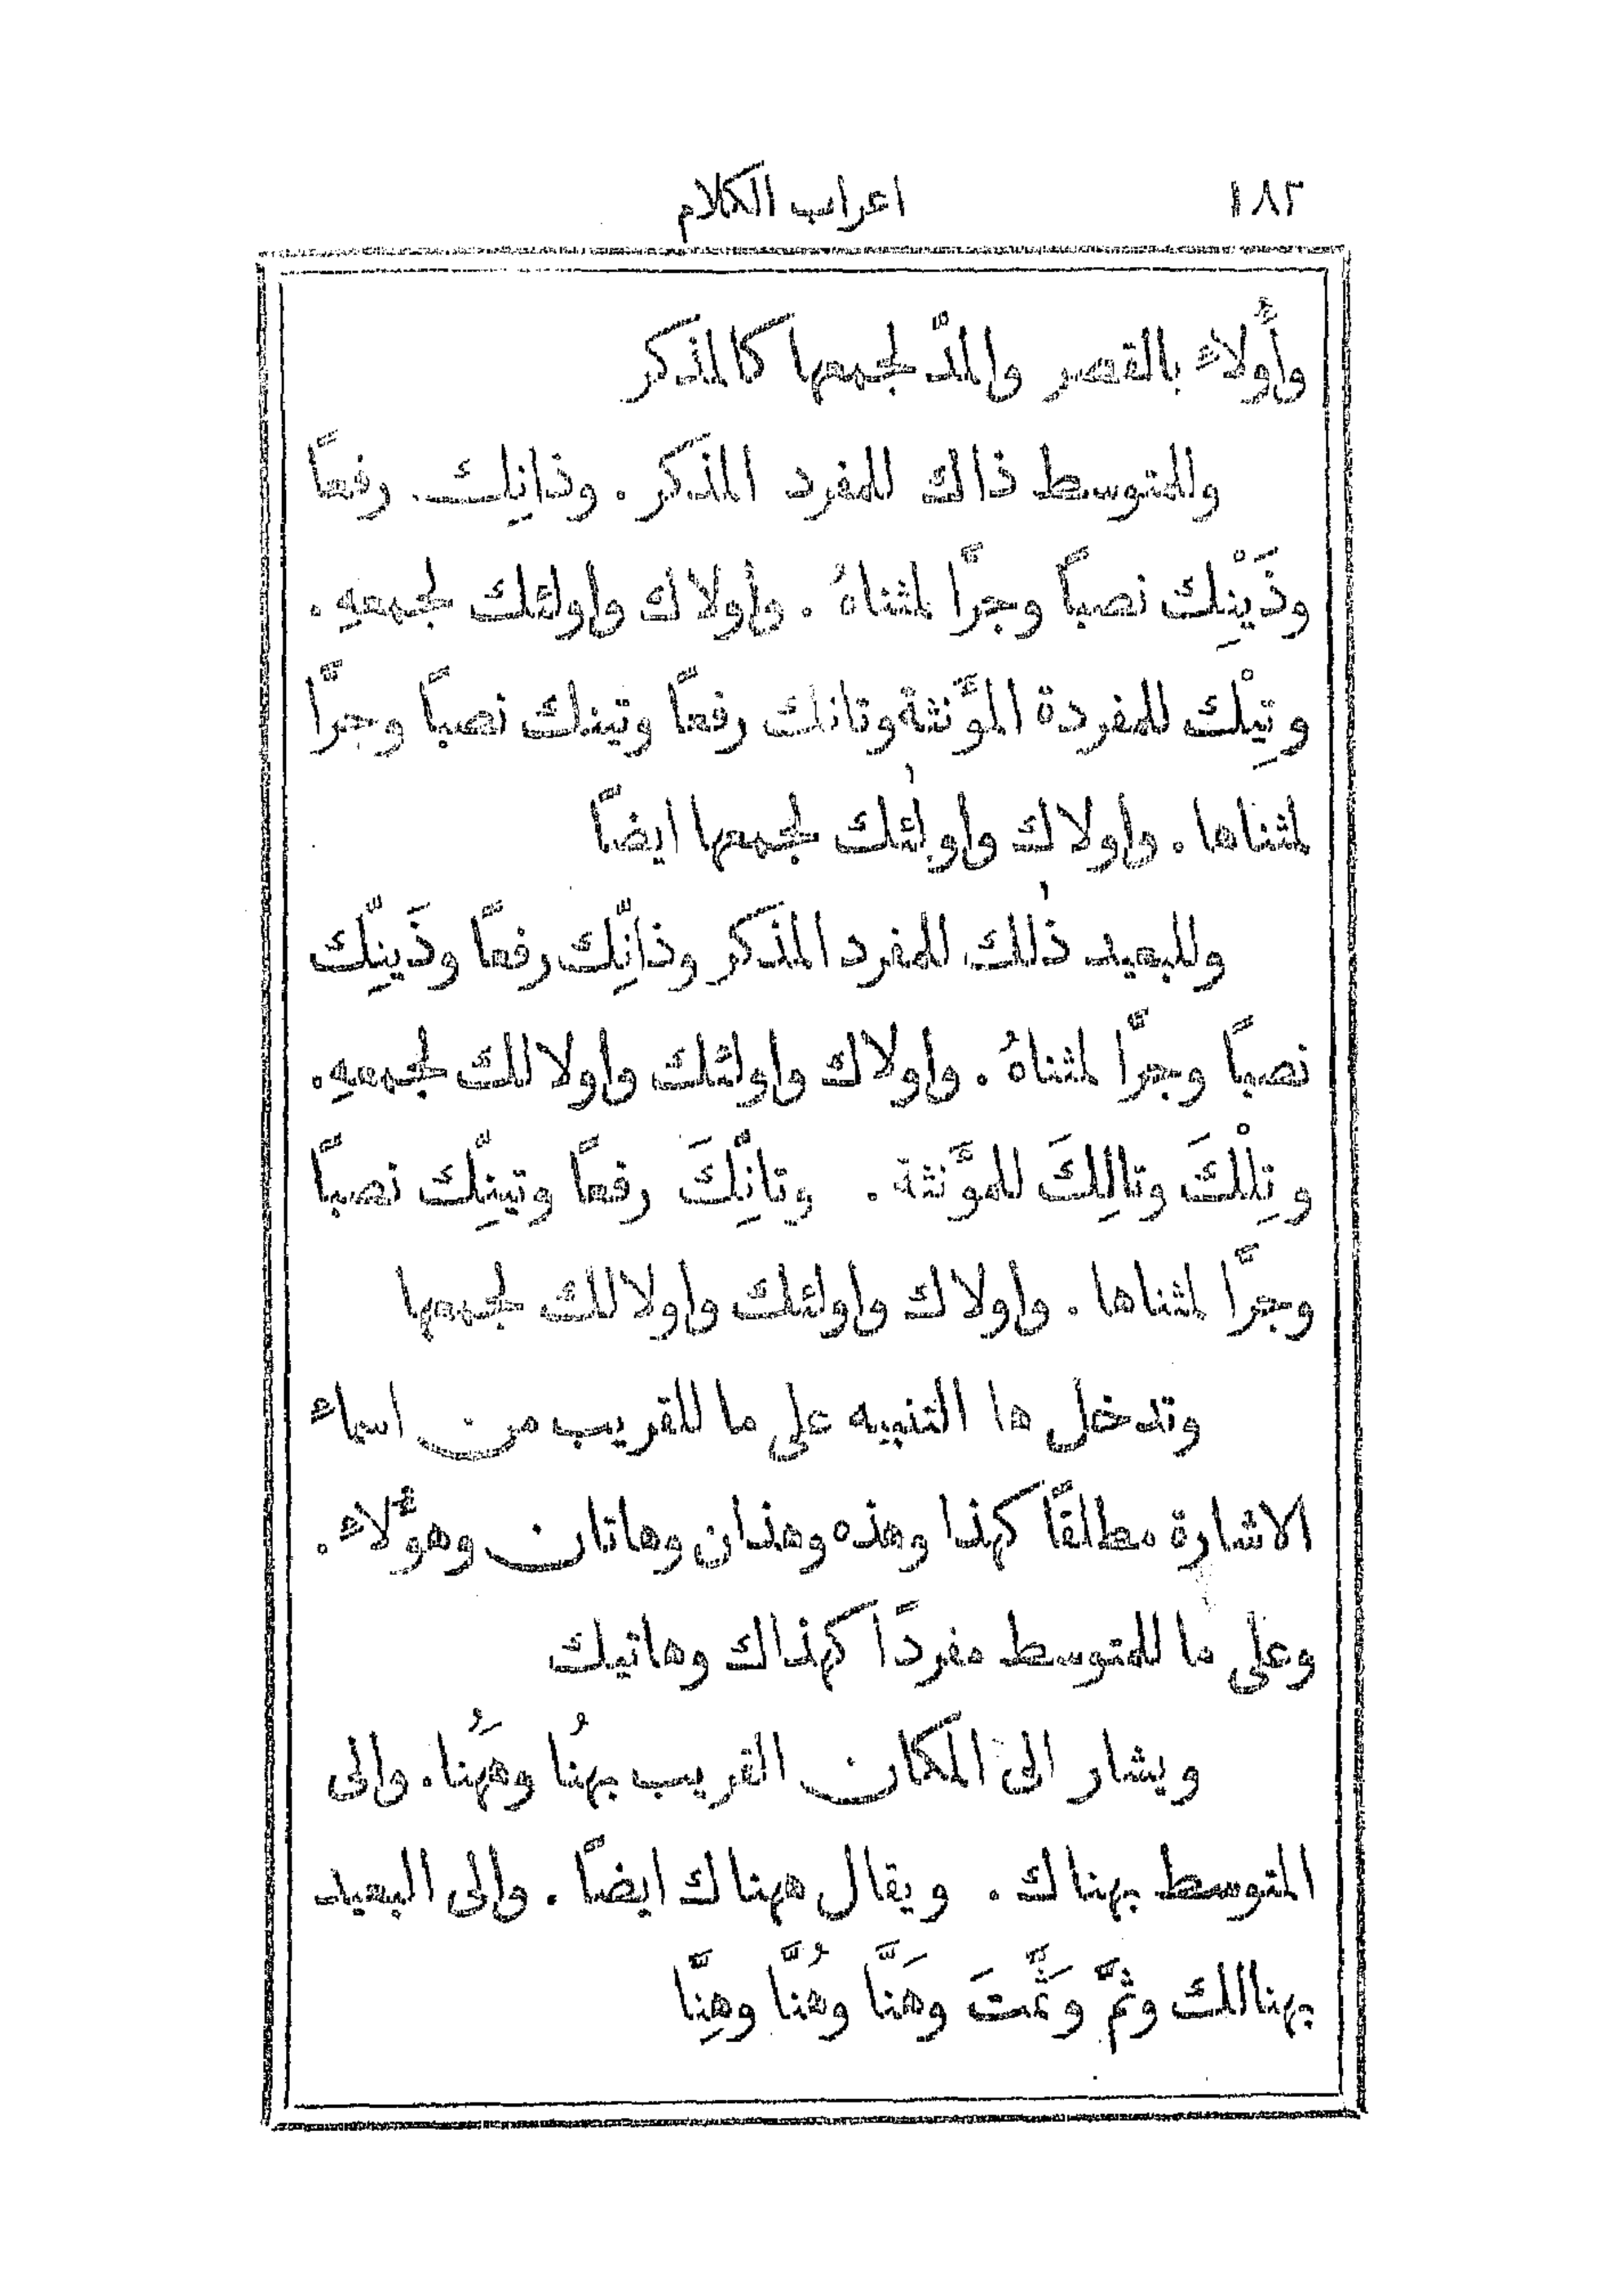 ١٨٢ اعراب الكلام
وأُولاء بالقصر والمدّ لجمعها كالمذكر
وللمتوسط ذاك للمفرد المذكر. وذانِك رفعًا
وذَيْنِك نصبًا وجرًّا لمثناهُ. واولاك واولئك لجمعهِ.
وتِيْك للمفردة المؤَنثة وتانك رفعًا وتينك نصبًا وجرًّا
لمثناها. واولاك واولٰئك لجمعها ايضًا
وللبعيد ذٰلك للمفرد المذكر وذانِّك رفعًا وذَينِّك
نصبًا وجرًّا لمثناهُ. واولاك واولئك واولالك لجمعهِ.
وتِلْكَ وتالِكَ للمؤَنثة. وتانِّكَ رفعًا وتينِّك نصبًا
وجرًّا لمثناها. واولاك واولئك واولالك لجمعها
وتدخل ها التنبيه على ما للقريب من اسماء
الاشارة مطلقًا كهذا وهذه وهذان وهاتان وهؤُلاء.
وعلى ما للمتوسط مفردًا كهذاك وهاتيك
ويشار الى المكان القريب بهُنا وهَهُنا. والى
المتوسط بهناك. ويقال ههناك ايضًا. والى البعيد
بهنالك وثمَّ وثَمَّتَ وهَنَّا وهُنَّا وهِنَّا